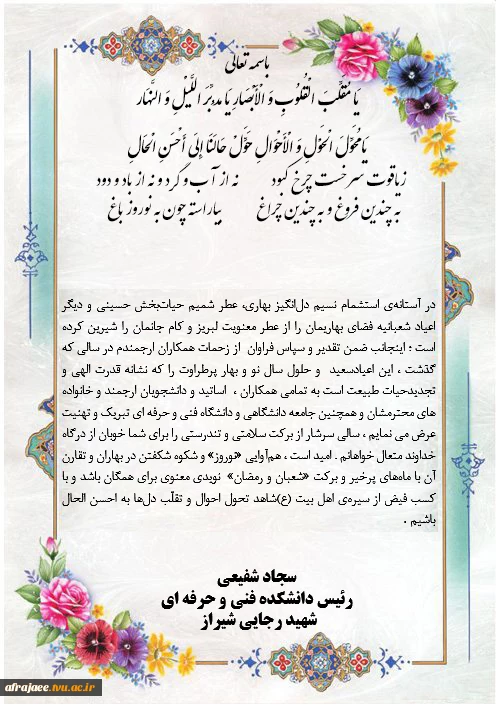 باسمه تعالی
یَا مُقَلِّبَ الْقُلُوبِ وَ الْأَبْصَارِ یَا مُدَبِّرَ اللَّیْلِ وَ النَّهَار
یَا مُحَوِّلَ الْحَوْلِ وَ الْأَحْوَالِ حَوِّلْ حَالَنَا إِلَى أَحْسَنِ الْحَالِ
ز یاقوت سرخست چرخ کبود نه از آب و گرد و نه از باد و دود
به چندین فروغ و به چندین چراغ بیاراسته چون به نوروز باغ
در آستانه‌ی استشمام نسیم دل‌انگیز بهاری، عطر شمیم حیات‌بخش حسینی و دیگر
اعیاد شعبانیه فضای بهاریمان را از عطر معنویت لبریز و کام جانمان را شیرین کرده
است ؛ اینجانب ضمن تقدیر و سپاس فراوان از زحمات همکاران ارجمندم در سالی که
گذشت ، این اعیادسعید و حلول سال نو و بهار پرطراوت را که نشانه قدرت الهی و
تجدیدحیات طبیعت است به تمامی همکاران ، اساتید و دانشجویان ارجمند و خانواده
های محترمشان و همچنین جامعه دانشگاهی و دانشگاه فنی و حرفه ای تبریک و تهنیت
عرض می نمایم ، سالی سرشار از برکت سلامتی و تندرستی را برای شما خوبان از درگاه
خداوند متعال خواهانم . امید است ، هم‌آوایی «نوروز» و شکوه شکفتن در بهاران و تقارن
آن با ماه‌های پرخیر و برکت «شعبان و رمضان» نویدی معنوی برای همگان باشد و با
کسب فیض از سیره‌ی اهل بیت (ع)شاهد تحول احوال و تقلّب دل‌ها به احسن الحال
باشیم .
سجاد شفیعی
رئیس دانشکده فنی و حرفه ای
شهید رجایی شیراز
afrajaee.tvu.ac.ir